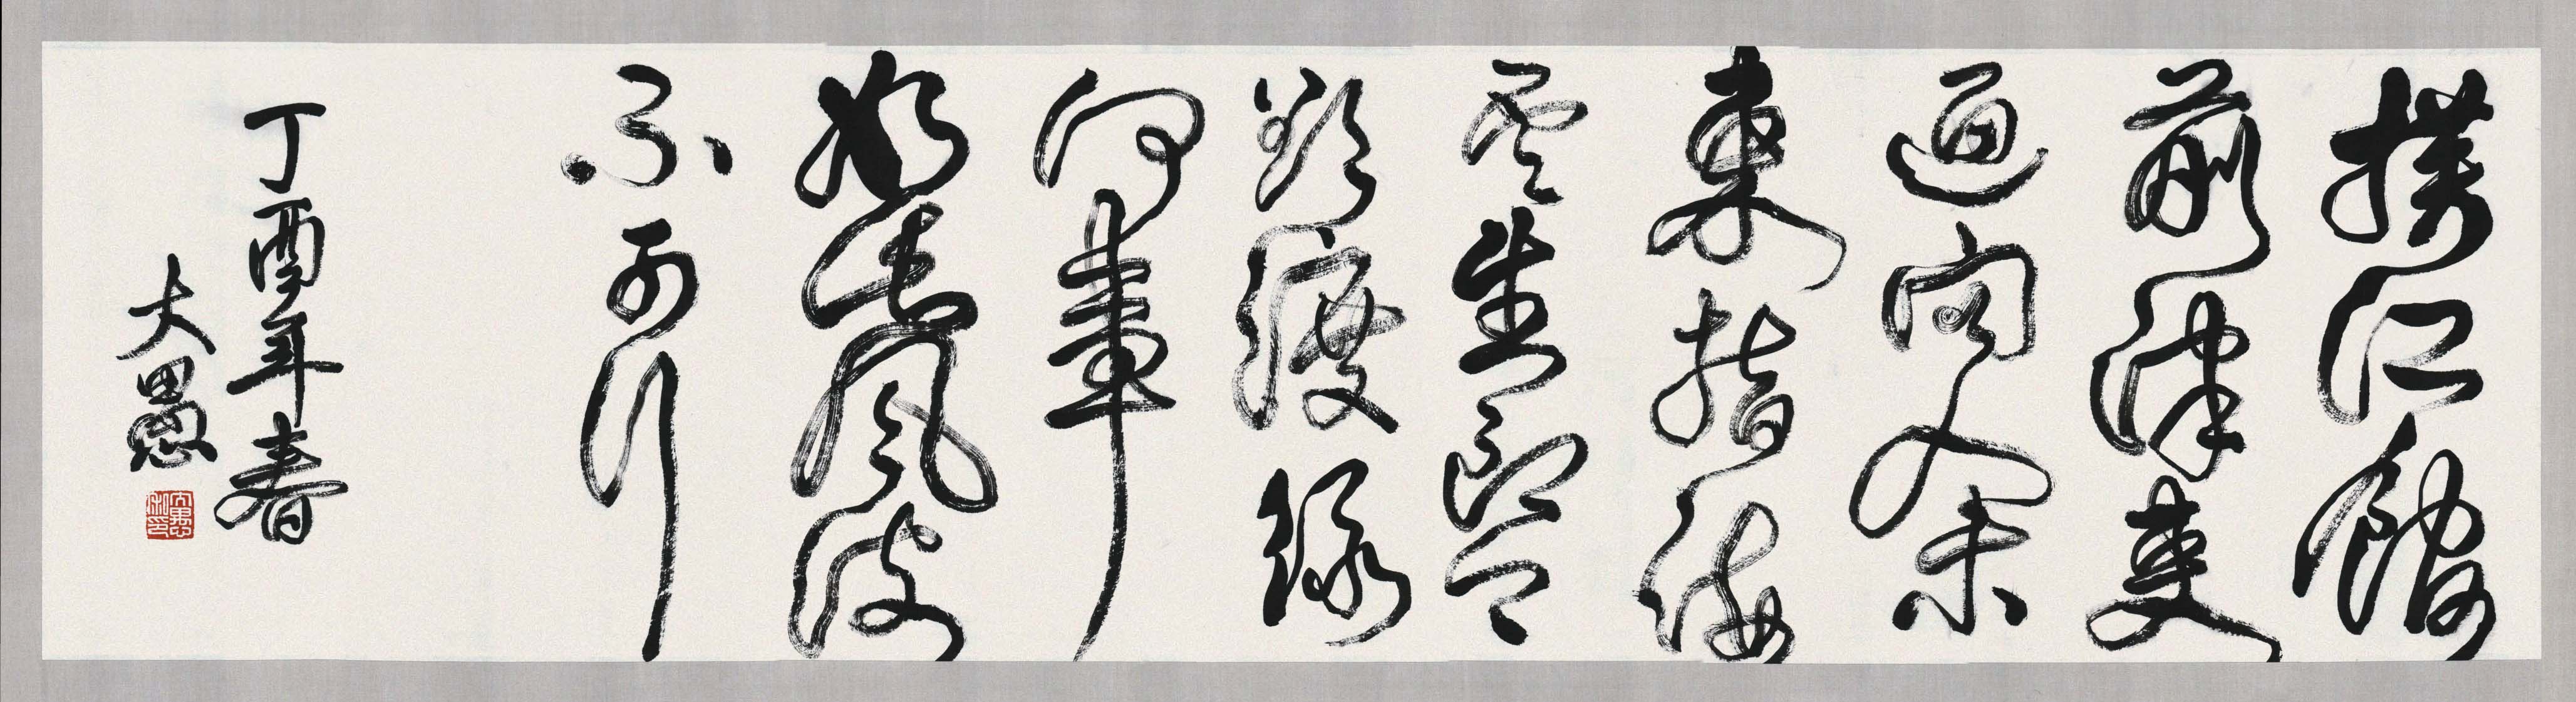 横江館
前津吏
迎向余
東指海
雲生郎今
欲渡緣
何事
如此風波
不可行
丁酉年春
大愚